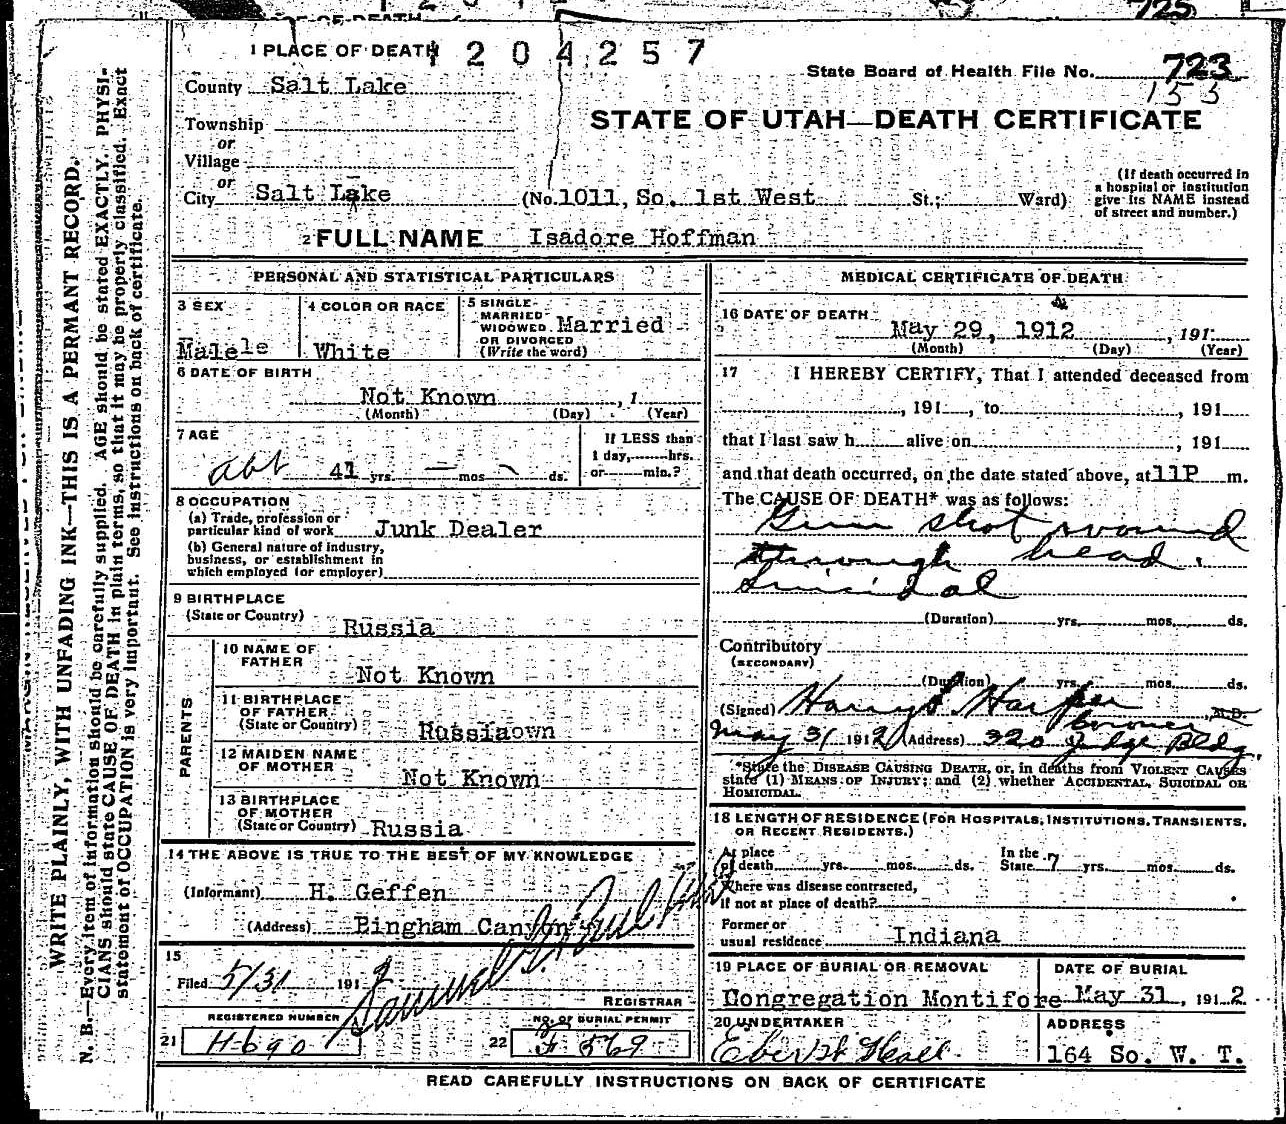 1 PLACE OF DEATH 1204257
State Board of Health File No. 723
153
County Salt Lake
STATE OF UTAH—DEATH CERTIFICATE
Township
or
Village
or
City Salt Lake (No. 1011, So. 1st West St.; Ward)
(If death occurred in
a hospital or institution
give its NAME instead
of street and number.)
2 FULL NAME Isadore Hoffman
PERSONAL AND STATISTICAL PARTICULARS
3 SEX
Male
4 COLOR OR RACE
White
5 SINGLE
MARRIED
WIDOWED
OR DIVORCED
(Write the word)
Married
6 DATE OF BIRTH
Not Known , 1
(Month) (Day) (Year)
7 AGE
abt 41 yrs. — mos — ds.
If LESS than
1 day, hrs.
or min.?
8 OCCUPATION
(a) Trade, profession or
particular kind of work Junk Dealer
(b) General nature of industry,
business, or establishment in
which employed (or employer)
9 BIRTHPLACE
(State or Country)
Russia
PARENTS
10 NAME OF
FATHER
Not Known
11 BIRTHPLACE
OF FATHER
(State or Country) Russia
12 MAIDEN NAME
OF MOTHER
Not Known
13 BIRTHPLACE
OF MOTHER
(State or Country) Russia
14 THE ABOVE IS TRUE TO THE BEST OF MY KNOWLEDGE
(Informant) H. Geffen
(Address) Bingham Canyon
15
Filed 5/31 191 2 Samuel G. Paul
REGISTRAR
REGISTERED NUMBER
21 H690
NO. OF BURIAL PERMIT
22 569
MEDICAL CERTIFICATE OF DEATH
16 DATE OF DEATH
May 29, 1912 , 191
(Month) (Day) (Year)
17 I HEREBY CERTIFY, That I attended deceased from
, 191 , to , 191
that I last saw h alive on , 191
and that death occurred, on the date stated above, at 11P m.
The CAUSE OF DEATH* was as follows:
Gun shot wound
through head.
Suicidal
(Duration) yrs. mos. ds.
Contributory
(SECONDARY)
(Duration) yrs. mos. ds.
(Signed) Harry S Harper , M.D.
Coroner
May 31 1912 (Address) 320 Judge Bldg.
*State the DISEASE CAUSING DEATH, or, in deaths from VIOLENT CAUSES
state (1) MEANS OF INJURY; and (2) whether ACCIDENTAL, SUICIDAL OR
HOMICIDAL.
18 LENGTH OF RESIDENCE (FOR HOSPITALS, INSTITUTIONS, TRANSIENTS,
OR RECENT RESIDENTS.)
At place
of death yrs. mos. ds.
In the
State 7 yrs. mos. ds.
Where was disease contracted,
if not at place of death?
Former or
usual residence Indiana
19 PLACE OF BURIAL OR REMOVAL
Congregation Montifore
DATE OF BURIAL
May 31 , 191 2
20 UNDERTAKER
Eber W Hall
ADDRESS
164 So. W. T.
READ CAREFULLY INSTRUCTIONS ON BACK OF CERTIFICATE
WRITE PLAINLY, WITH UNFADING INK—THIS IS A PERMANT RECORD.
N. B.—Every item of information should be carefully supplied. AGE should be stated EXACTLY. PHYSI-
CIANS should state CAUSE OF DEATH in plain terms, so that it may be properly classified. Exact
statement of OCCUPATION is very important. See instructions on back of certificate.